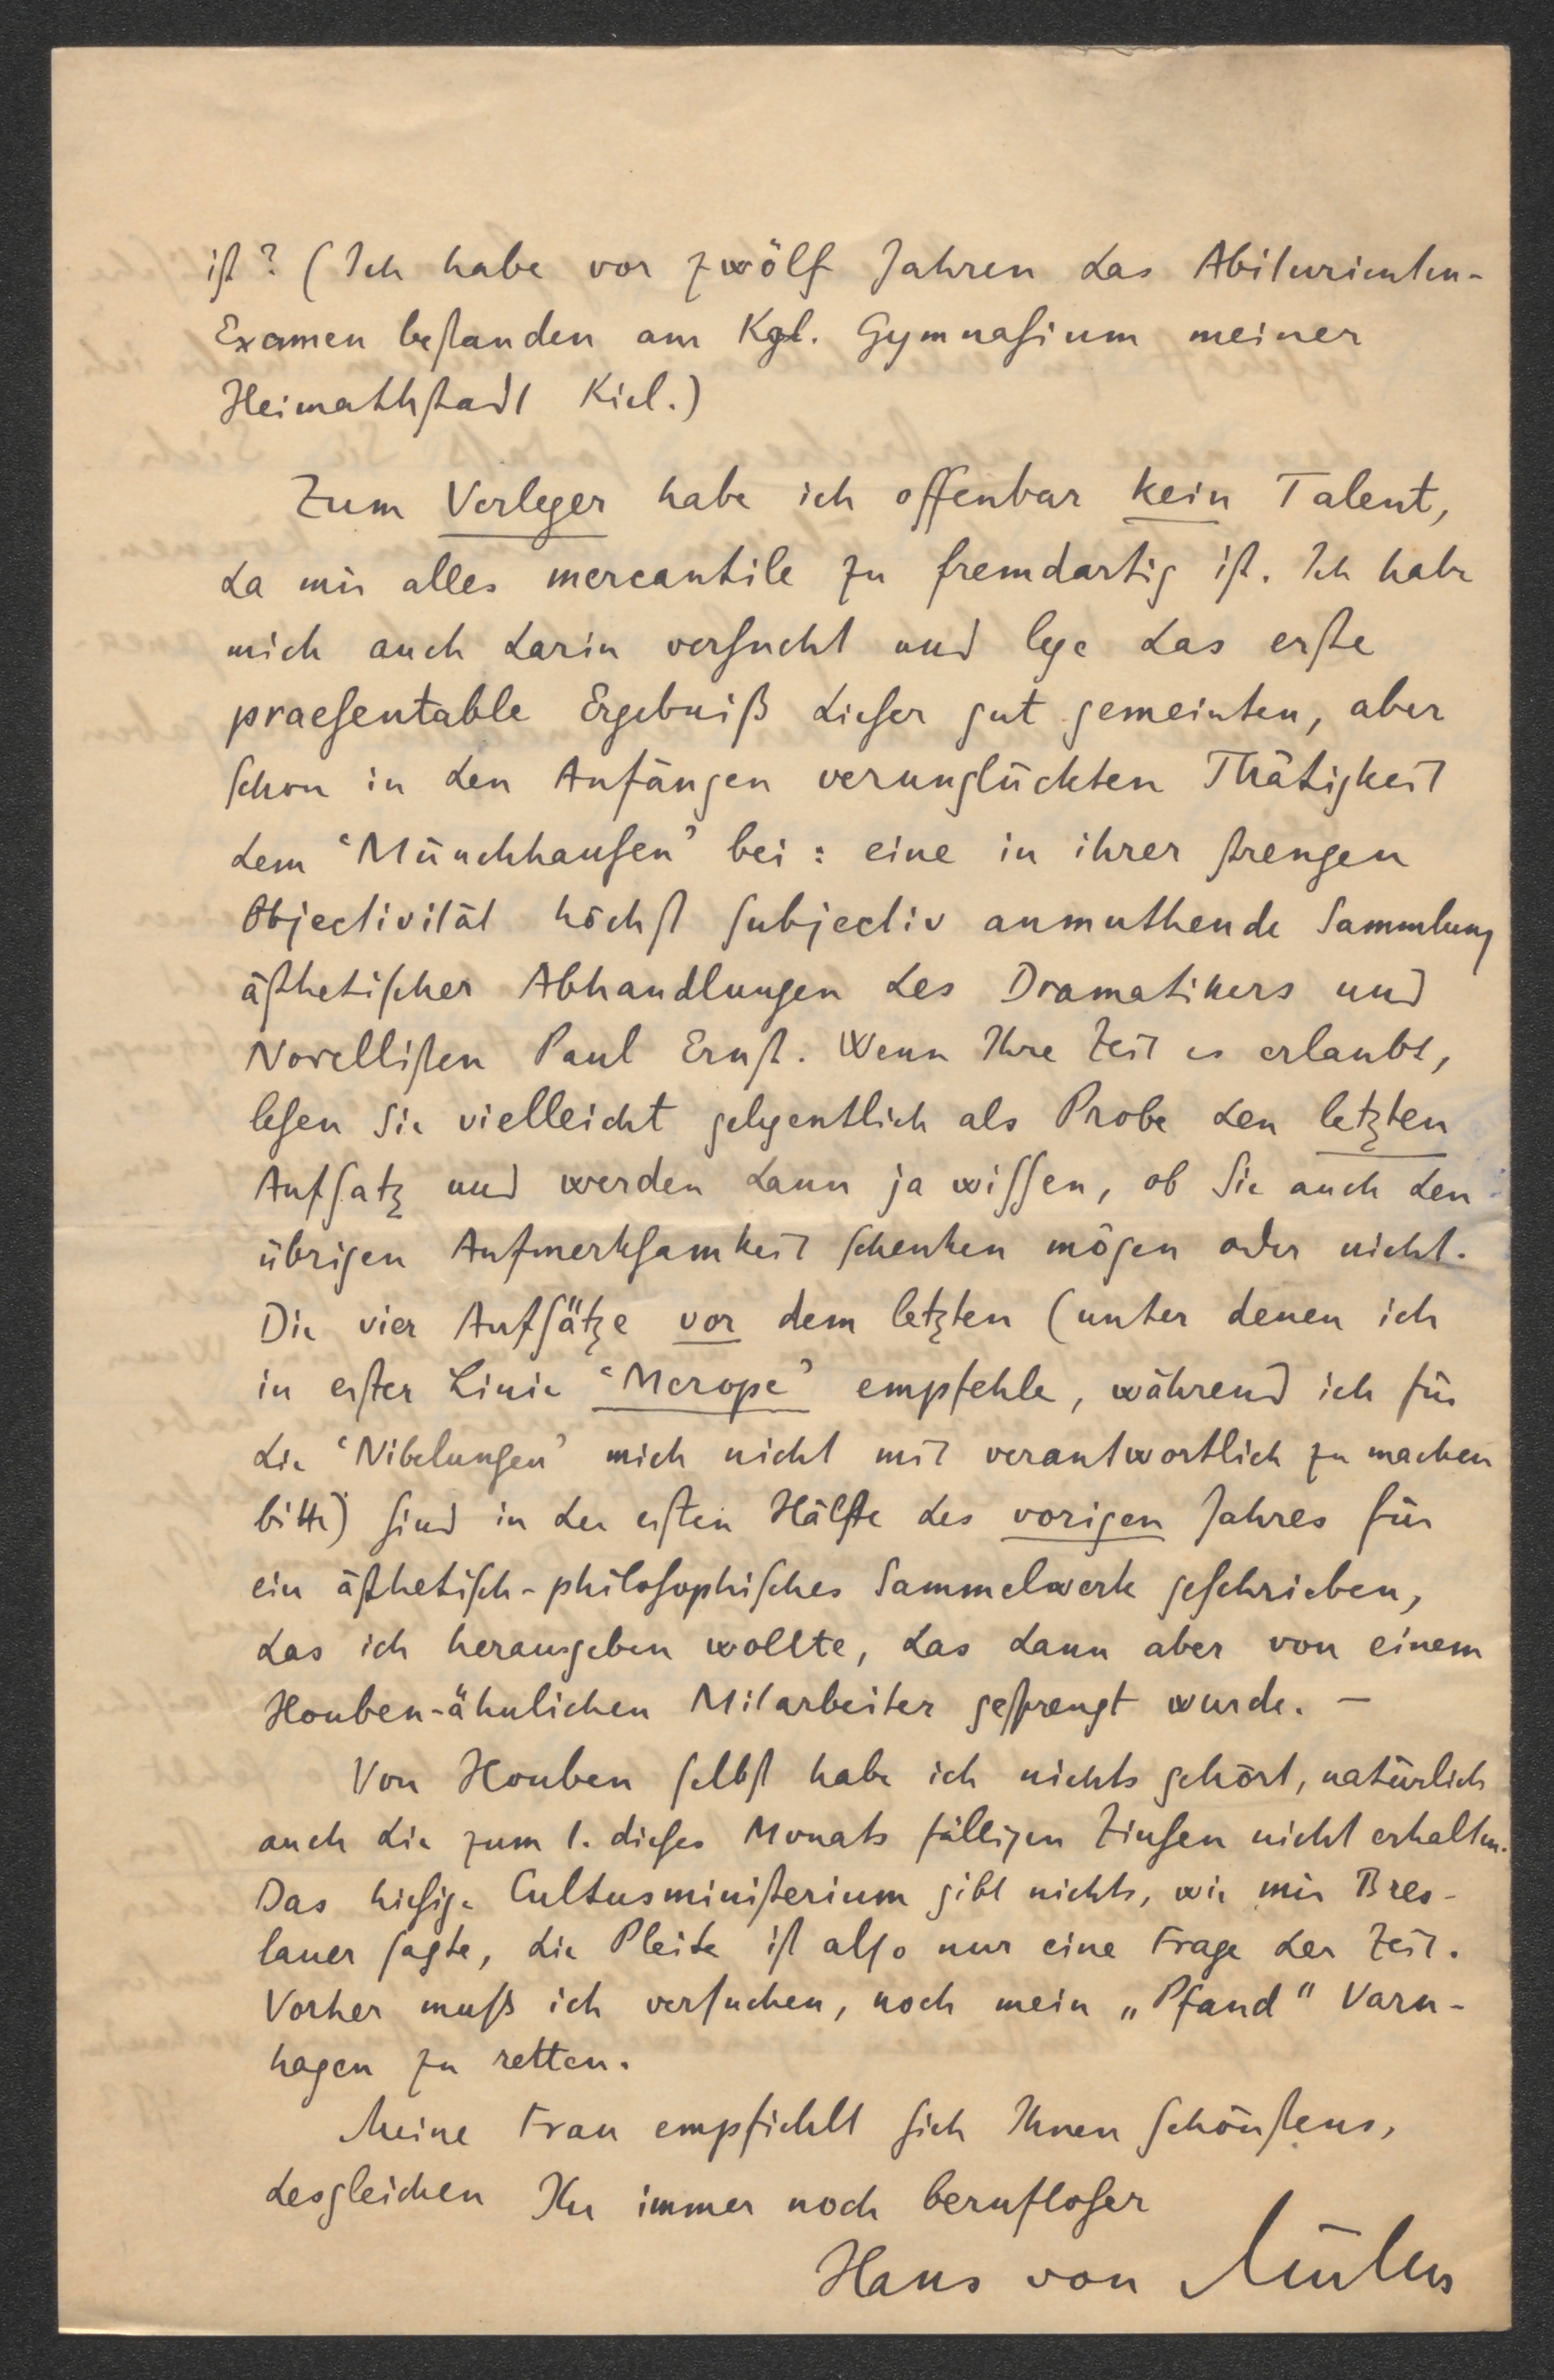 ist? (Ich habe vor zwölf Jahren das Abiturienten-
Examen bestanden am Kgl. Gymnasium meiner
Heimathstadt Kiel.)
Zum Verleger habe ich offenbar kein Talent,
da mir alles mercantile zu fremdartig ist. Ich habe
mich auch darin versucht und lege das erste
praesentable Ergebniß dieser gut gemeinten, aber
schon in den Anfängen verunglückten Thätigkeit
dem ‘Münchhausen’ bei: eine in ihrer strengen
Objectivität höchst subjectiv anmuthende Sammlung
ästhetischer Abhandlungen des Dramatikers und
Novellisten Paul Ernst. Wenn Ihre Zeit es erlaubt,
lesen Sie vielleicht gelegentlich als Probe den letzten
Aufsatz und werden dann ja wissen, ob Sie auch den
übrigen Aufmerksamkeit schenken mögen oder nicht.
Die vier Aufsätze vor dem letzten (unter denen ich
in erster Linie ‘Merope’ empfehle, während ich für
die ‘Nibelungen’ mich nicht mit verantwortlich zu machen
bitte) sind in der ersten Hälfte des vorigen Jahres für
ein ästhetisch-philosophisches Sammelwerk geschrieben,
das ich herausgeben wollte, das dann aber von einem
Houben-ähnlichen Mitarbeiter gesprengt wurde. —
Von Houben selbst habe ich nichts gehört, natürlich
auch die zum 1. dieses Monats fälligen Zinsen nicht erhalten.
Das hiesige Cultusministerium gibt nichts, wie mir Bres-
lauer sagte, die Pleite ist also nur eine Frage der Zeit.
Vorher muß ich versuchen, noch mein „Pfand“ Varn-
hagen zu retten.
Meine Frau empfiehlt sich Ihnen schönstens,
desgleichen Ihr immer noch berufloser
Hans von Müller